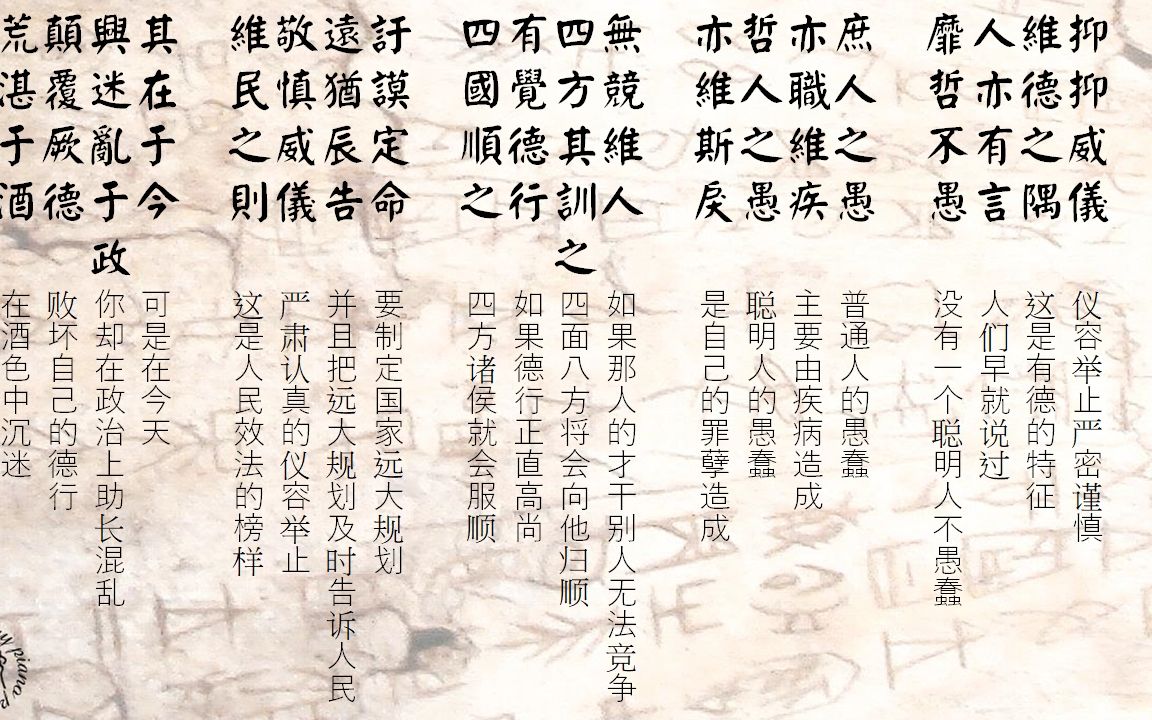 抑抑威儀
維德之隅
人亦有言
靡哲不愚
庶人之愚
亦職維疾
哲人之愚
亦維斯戾
無競維人
四方其訓之
有覺德行
四國順之
訏謨定命
遠猶辰告
敬慎威儀
維民之則
其在于今
興迷亂于政
顛覆厥德
荒湛于酒
仪容举止严密谨慎
这是有德的特征
人们早就说过
没有一个聪明人不愚蠢
普通人的愚蠢
主要由疾病造成
聪明人的愚蠢
是自己的罪孽造成
如果那人的才干别人无法竞争
四面八方将会向他归顺
如果德行正直高尚
四方诸侯就会服顺
要制定国家远大规划
并且把远大规划及时告诉人民
严肃认真的仪容举止
这是人民效法的榜样
可是在今天
你却在政治上助长混乱
败坏自己的德行
在酒色中沉迷
piano